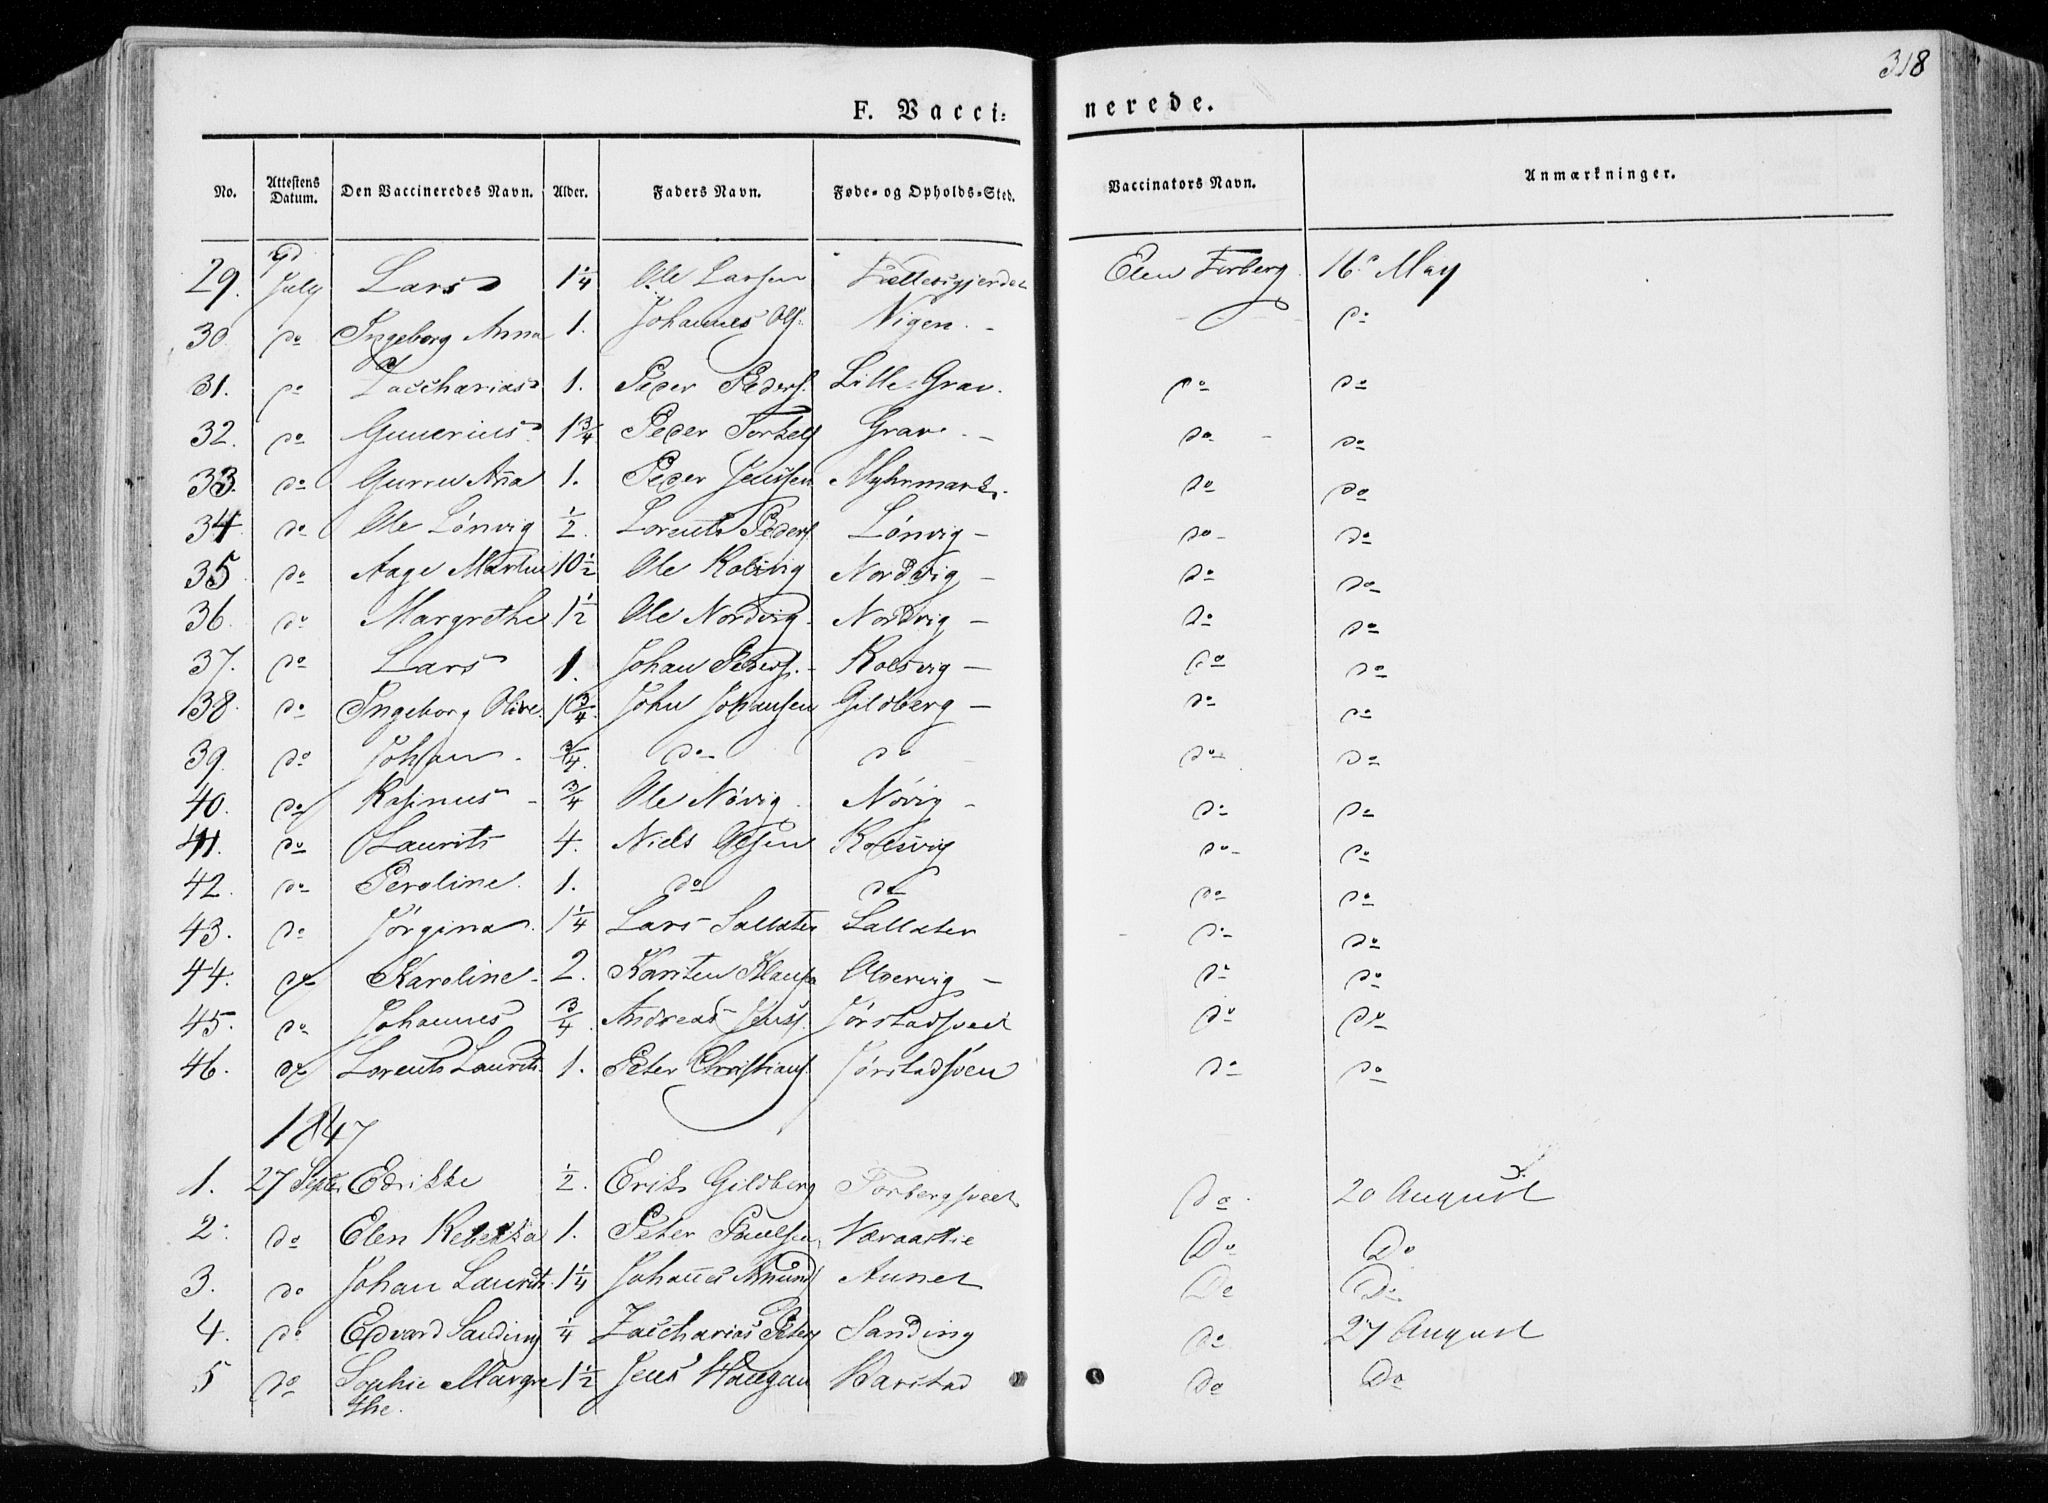 318
F. Vacci: nerede.
No. Attestens Datum. Den Vaccineredes Navn. Alder. Faders Navn. Føde- og Opholds-Sted. Vaccinators Navn. Anmærkninger.
29. July Lars 1¼ Ole Larsen Elen Forberg 16 May
30 do Ingeborg Anna 1. Johannes Ols. Vigen. do
31. do Zaccharias 1. Peder Peders. Lille Grav. do do
32. do Gunerius 1¾ Peder Torkels Grav do do
33. do Gurru Ana 1. Peder Jenssen Myhrmark. do do
34 do Ole Lönvig ½ Lorents Peders Lönvig do do
35 do Aage Martin 10½ Ole Kolsvig Nordvig do do
36. do Margrethe 1½ Ole Nordvig Nordvig do do
37. do Lars 1. Johan Peders. Kolsvig do do
38. do Ingeborg Olive John Johansen Gildberg do do
39. do Johan ¾ do do do do
40. do Rasinus ¾ Ole Növig Növig do do
41. do Laurits 4. Niels Olsen Kolsvig do do
42. do Peroline 1. do do do do
43. do Jörgina 1¼ Lars Sallater Sallater do do
44. do Karoline 2. Karsten Oldervig do do
45. do Johannes ¾ Andreas Jenss. Jörstadsveet do do
46. do Lorents Laurits 1. Peter Christians. Jörstadsven do do
1847
1. 27 Septer Edrikke ½ Erik Gildberg Forbergsveet do 20 August
2. do Elen Rebekka 1. Peter Paulsen Do Do
3. do Johan Laurits 1¼ Johañes Amund Aunet Do Do
4. do Edvard Sanding ¼ Zaccharias Peters Sanding do 27 August
5 do Sophie Margre 1½ Jens Haugan Harstad do Do
the.